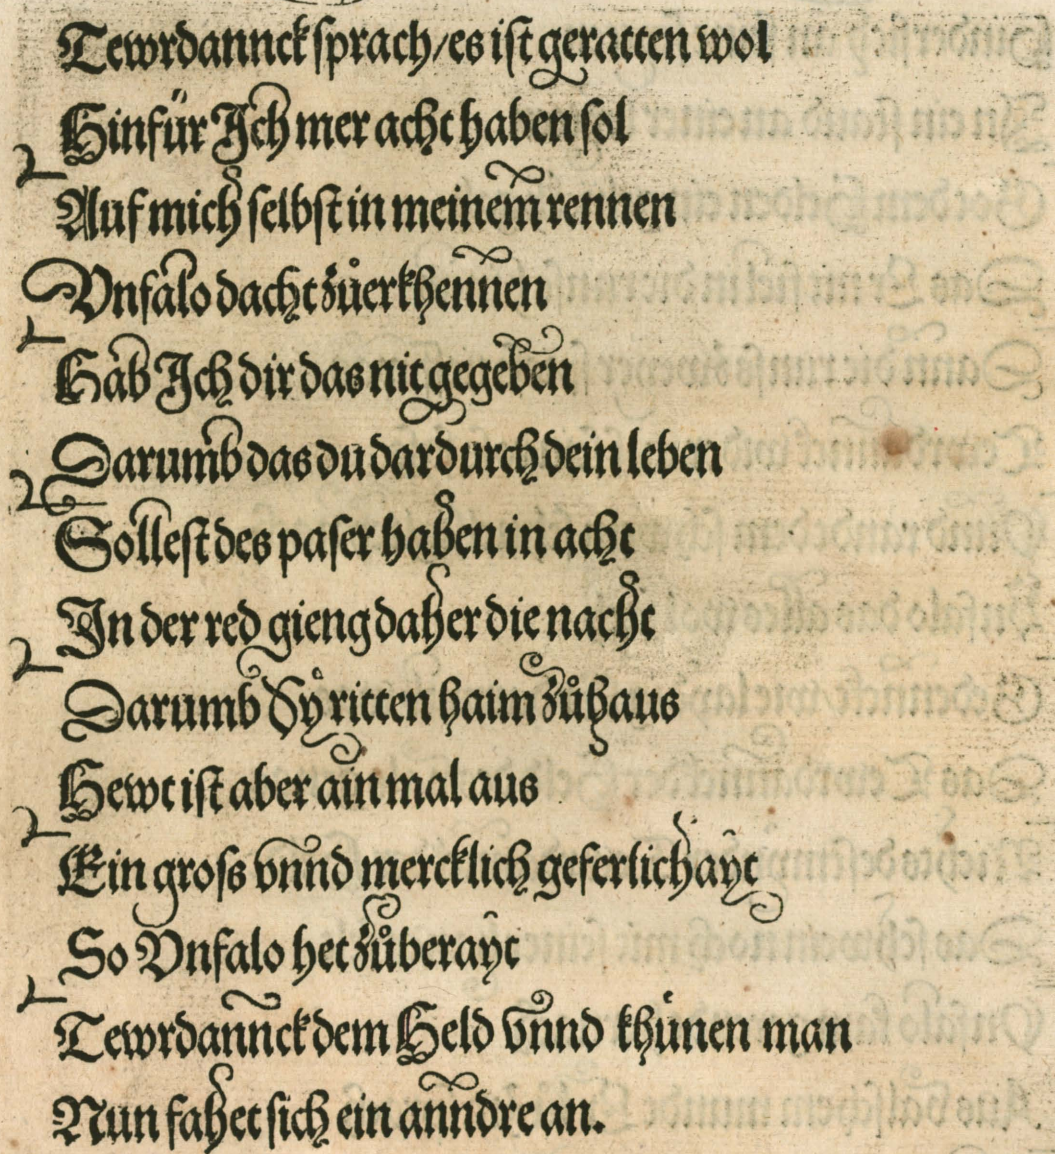 Tewrdannck sprach/es ist geratten wol
Hinfür Ich mer acht haben sol
Auf mich selbst in meinem rennen
Vnfalo dacht zůerkhennen
Hab Ich dir das nit gegeben
Darumb das du dardurch dein leben
Sollest des paser haben in acht
In der red gieng daher die nacht
Darumb Sÿ ritten haim zůhaus
Hewt ist aber ain mal aus
Ein gross vnnd mercklich geferlichayt
So Vnfalo het zůberayt
Tewrdannck dem Held vnnd khůnen man
Nun fahet sich ein anndre an.